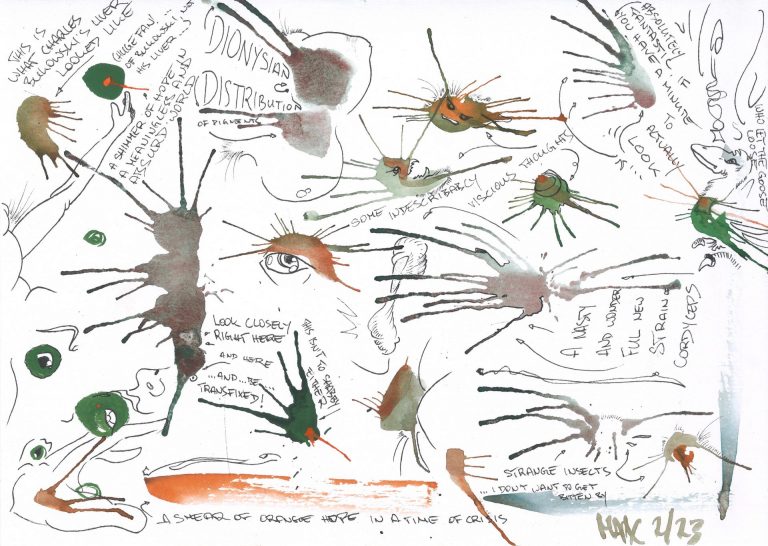 THIS IS
WHAT CHARLES
BUKOWSKI'S LIVER
LOOKED LIKE
(HUGE FAN
OF BUKOWSKI... NOT
HIS LIVER...)
A SHIMMER OF HOPE IN
A MEANINGLESS AND
ABSURD WORLD
DIONYSIAN
DISTRIBUTION
OF PIGMENTS
ABSOLUTELY
FANTASTIC IF
YOU HAVE A MINUTE
TO
ACTUALLY
LOOK
WHO LET THE GOOSE
LOOSE
SOME INDESCRIBABLY
VISCIOUS THOUGHTS
LOOK CLOSELY
RIGHT HERE
AND HERE
...AND...BE...
TRANSFIXED!
THIS ISN'T SO SHABBY
EITHER
A NASTY
AND WONDER
FUL NEW
STRAIN OF
CORDYCEPS
STRANGE INSECTS
...I DON'T WANT TO GET
BITTEN BY
A SMEAR OF ORANGE HOPE IN A TIME OF CRISIS
2/23